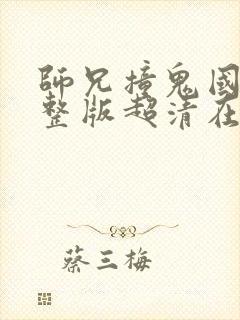 師兄撞鬼國
整版超清在
蔡三梅